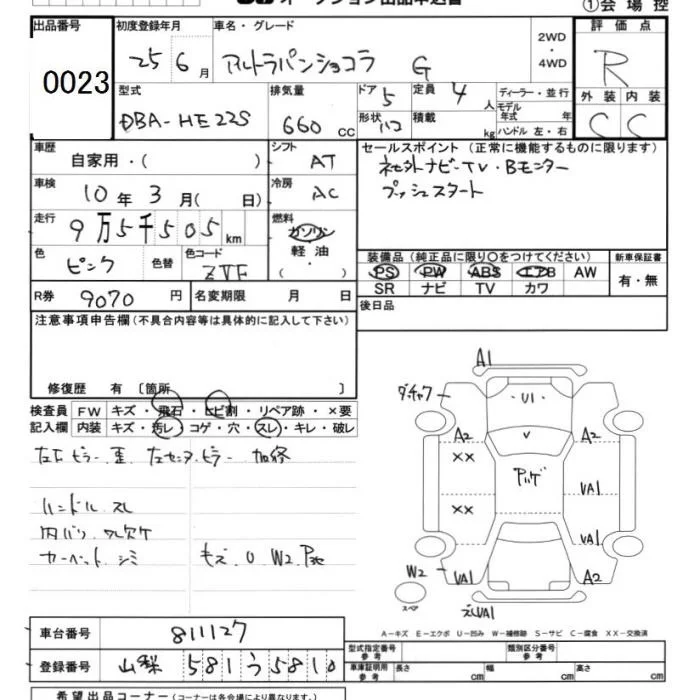 ①会場控
出品番号 初度登録年月 車名・グレード 評価点
0023 25 6月 アルトラパンショコラ G 2WD・4WD R
型式 排気量 ドア 5 定員 4人 ディーラー・並行 外装 内装
DBA-HE22S 660cc 形状 積載 kg モデル年式 年 ハンドル 左・右 C C
車歴 シフト セールスポイント(正常に機能するものに限ります)
自家用・( ) AT 社外ナビ・TV・Bモニター
車検 冷房 プッシュスタート
10年3月( 日) AC
走行 燃料
9万5千505km ガソリン
色 色替 色コード 軽油 装備品(純正品に限り○をつけてください) 新車保証書
ピンク ZVF ・( ) PS PW ABS エアB AW 有・無
R券 9070円 名変期限 月 日 SR ナビ TV カワ
注意事項申告欄(不具合内容等は具体的に記入して下さい) 後日品
修復歴 有〔箇所 〕
検査員 FW キズ・飛石・ヒビ割・リペア跡・×要
記入欄 内装 キズ・汚レ・コゲ・穴・スレ・キレ・破レ
左Fピラー歪 左センターピラー加修
ハンドルスレ
内バリ ワレ欠ケ
カーペットシミ キズ U W2
A1
U1
A2 V A2
XX
VA1
XX
VA1
W2
VA1 A2
スペア
A-キズ E-エクボ U-凹み W-補修跡 S-サビ C-腐食 XX-交換済
車台番号 811127
型式指定番号 参考 類別区分番号 参考
登録番号 山梨 581 う 5810 車庫証明用 参考 長さ cm 幅 cm 高さ cm
希望出品コーナー(コーナーは各会場により異なります。)